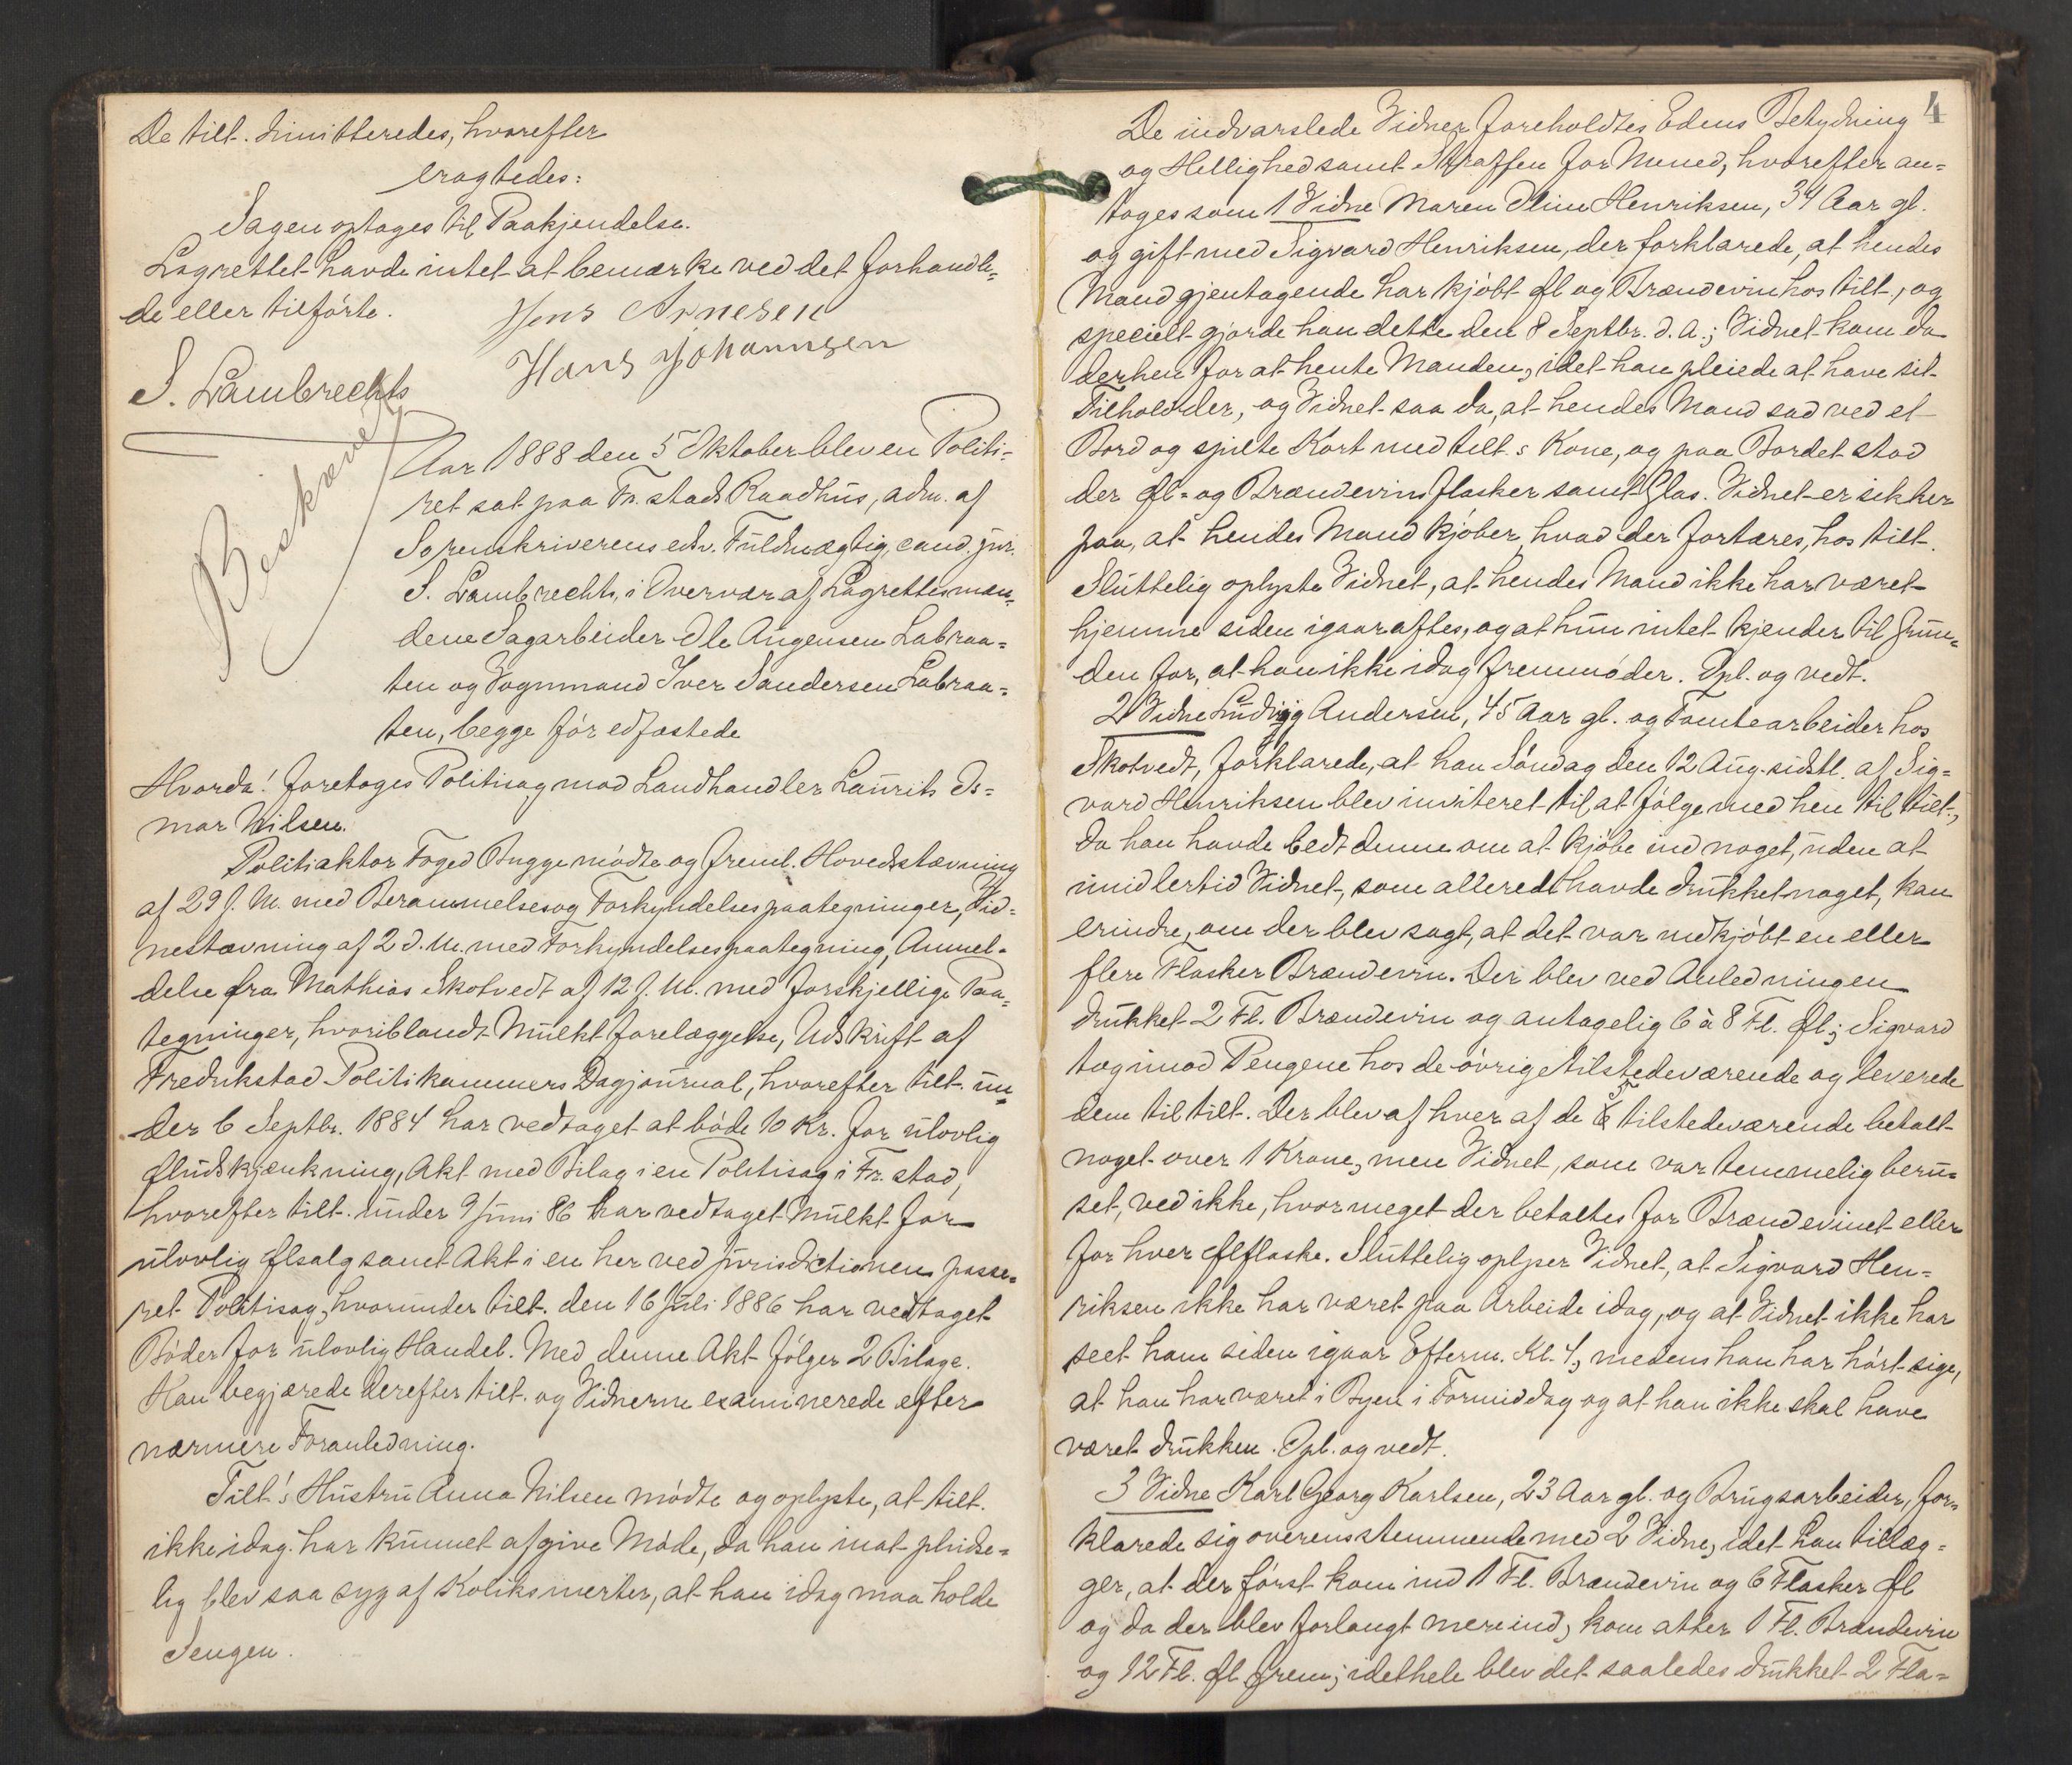 De tilt. dimitteredes, hvorefter
eragtedes:
Sagen optages til Paakjendelse.
Lagrettet havde intet at bemærke ved det forhandle=
de eller tilførte.
Jens Arnesen
Hans Johannsen
S. Lambrechts
Beskrevet
Aar 1888 den 5 Oktober blev en Politi=
ret sat paa Fr.stads Raadhus, adm. af
Sorenskriverens edsv. Fuldmægtig, cand. jur.
S. Lambrechts, i Overvær af Lagrettesmæn=
dene Sagarbeider Ole Augensen Labraa=
ten og Vognmand Iver Sandersen Labraa=
ten, begge før edfæstede
Hvorda! foretoges Politisag mod Landhandler Laurits Os=
mar Nilsen.
Politiaktor Foged Bugge mødte og freml. Hovedstævning
af 29 f. M. med Berammelses og Forkyndelsespaategninger, Vid=
nestævning af 2 d. M. med Forkyndelsespaategning, Anmel=
delse fra Mathias Skotvedt af 12 f. M. med forskjellige Paa=
tegninger, hvoriblandt Mulktforelæggelse, Udskrift af
Fredrikstad Politikammers Dagjournal, hvorefter tilt. un=
der 6 Septbr. 1884 har vedtaget at bøde 10 Kr. for ulovlig
Øludskjænkning, Akt med Bilag i en Politisag i Fr.stad,
hvorefter tilt. under 9 Juni 86 har vedtaget Mulkt for
ulovlig Ølsalg samt Akt i en her ved jurisdictionen passe=
ret Politisag, hvorunder tilt. den 16 Juli 1886 har vedtaget
Bøder for ulovlig Handel. Med denne Akt følger 2 Bilage.
Han begjærede derefter tilt. og Vidnerne examinerede efter
nærmere Foranledning.
Tilt's Hustru Anna Nilsen mødte og oplyste, at tilt.
ikke idag har kunnet afgive Møde, da han inat pludse=
lig blev saa syg af Koliksmerter, at han idag maa holde
Sengen.
4
De indvarslede Vidner foreholdtes Edens Betydning
og Hellighed samt Straffen for Mened, hvorefter an=
toges som 1 Vidne Maren Oline Henriksen, 34 Aar gl.
og gift med Sigvard Henriksen, der forklarede, at hendes
Mand gjentagende har kjøbt Øl og Brændevin hos tilt., og
specielt gjorde han dette den 8 Septbr. d. A.; Vidnet kom da
derhen for at hente Manden, idet han pleiede at have sit
Tilhold der, og Vidnet saa da, at hendes Mand sad ved et
Bord og spilte Kort med tilt.s Kone, og paa Bordet stod
der Øl= og Brændevinsflasker samt Glas. Vidnet er sikker
paa, at hendes Mand kjøber, hvad der fortæres, hos tilt.
Sluttelig oplyste Vidnet, at hendes Mand ikke har været
hjemme siden igaaraftes, og at hun intet kjender til Grun=
den for, at han ikke idag fremmøder. Opl. og vedt.
2 Vidne Ludvig Andersen, 45 Aar gl. og Tomtearbeider hos
Skotvedt, forklarede, at han Søndag den 12 Aug. sidstl. af Sig=
vard Henriksen blev inviteret til at følge med hen til tilt.,
da han havde bedt denne om at kjøbe ind noget, uden at
imidlertid Vidnet, som allerede havde drukket noget, kan
erindre, om der blev sagt, at det var indkjøbt en eller
flere Flasker Brændevin. Der blev ved Anledningen
drukket 2 Fl. Brændevin og antagelig 6 à 8 Fl. Øl; Sigvard
tog imod Pengene hos de øvrige tilstedeværende og leverede
dem til tilt. Der blev af hver af de 5 tilstedeværende betalt
noget over 1 Krone, men Vidnet, som var temmelig beru=
set, ved ikke, hvormeget der betaltes for Brændevinet eller
for hver Ølflaske. Sluttelig oplyser Vidnet, at Sigvard Hen=
riksen ikke har været paa Arbeide idag, og at Vidnet ikke har
seet ham siden igaar Efterm. Kl. 4, medens han har hørt sige,
at han har været i Byen i Formiddag og at han ikke skal have
været drukken. Opl. og vedt.
3 Vidne Karl Georg Karlsen, 23 Aar gl. og Brugsarbeider, for=
klarede sig overensstemmende med 2 Vidne, idet han tillæg=
ger, at der først kom ind 1 Fl. Brændevin og 6 Flasker Øl
og da der blev forlangt mere ind, kom atter 1 Fl. Brændevin
og 12 Fl. Øl frem; idethele blev det saaledes drukket 2 Fla=